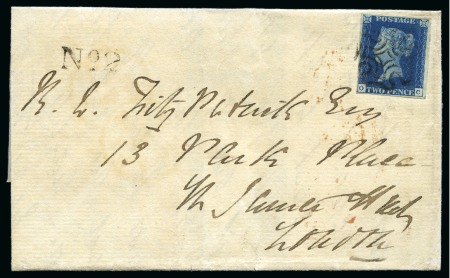 POSTAGE
TWO PENCE
No2
Fitz Patrick Esq
13 Park Place
St James Street
London